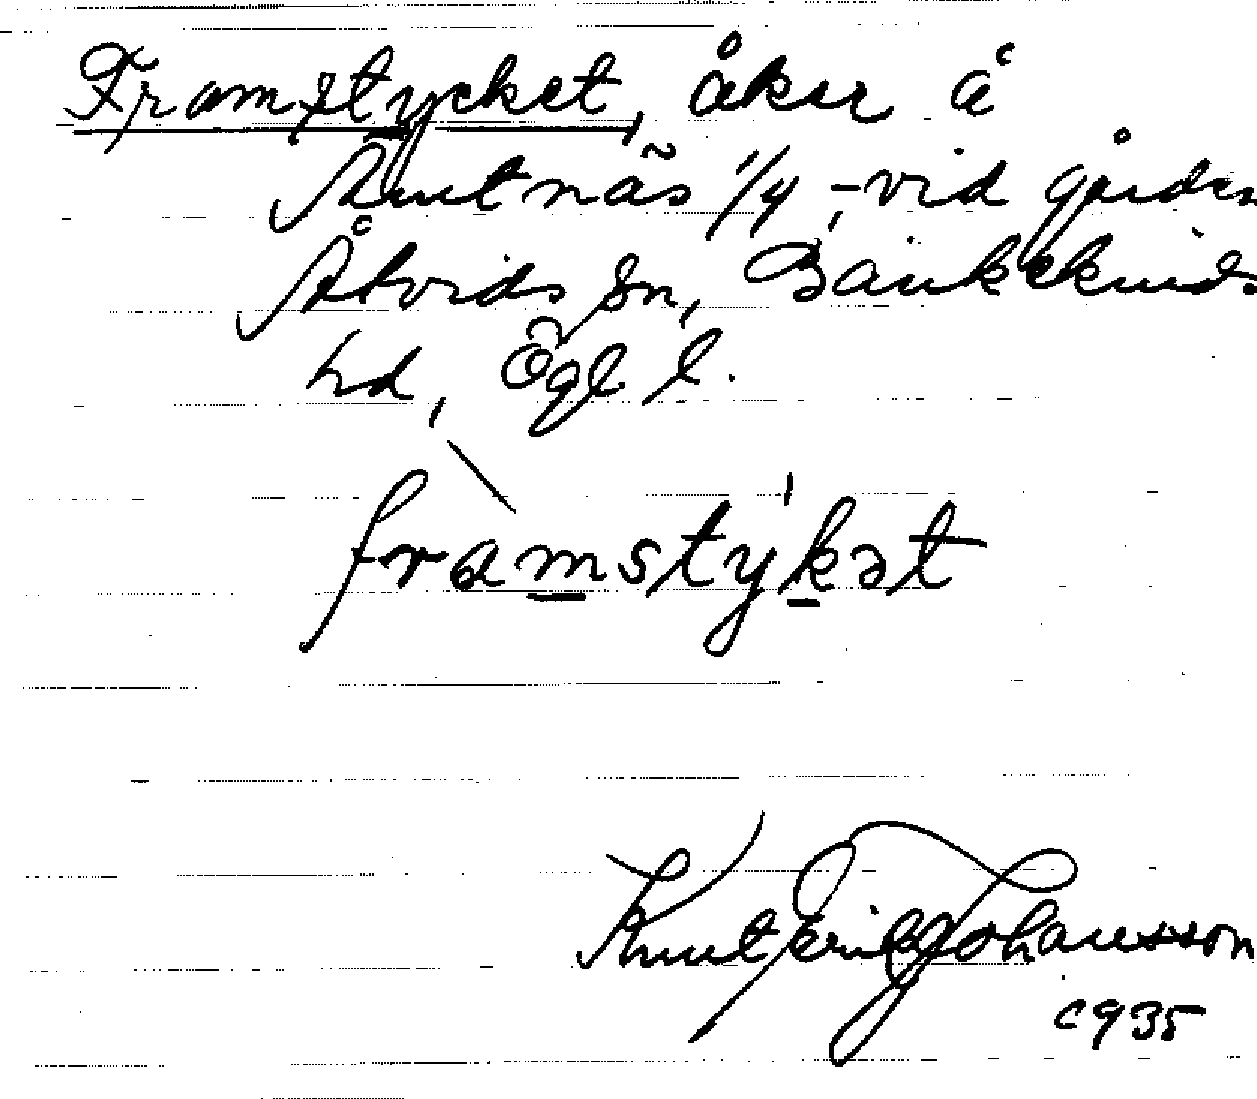 Framstycket, åker å
Amtnäs 1/4, vid gården
Åtvids sn, Bankekinds
hd, Ögl l.
framstykət
Knut Erik Johansson
1935